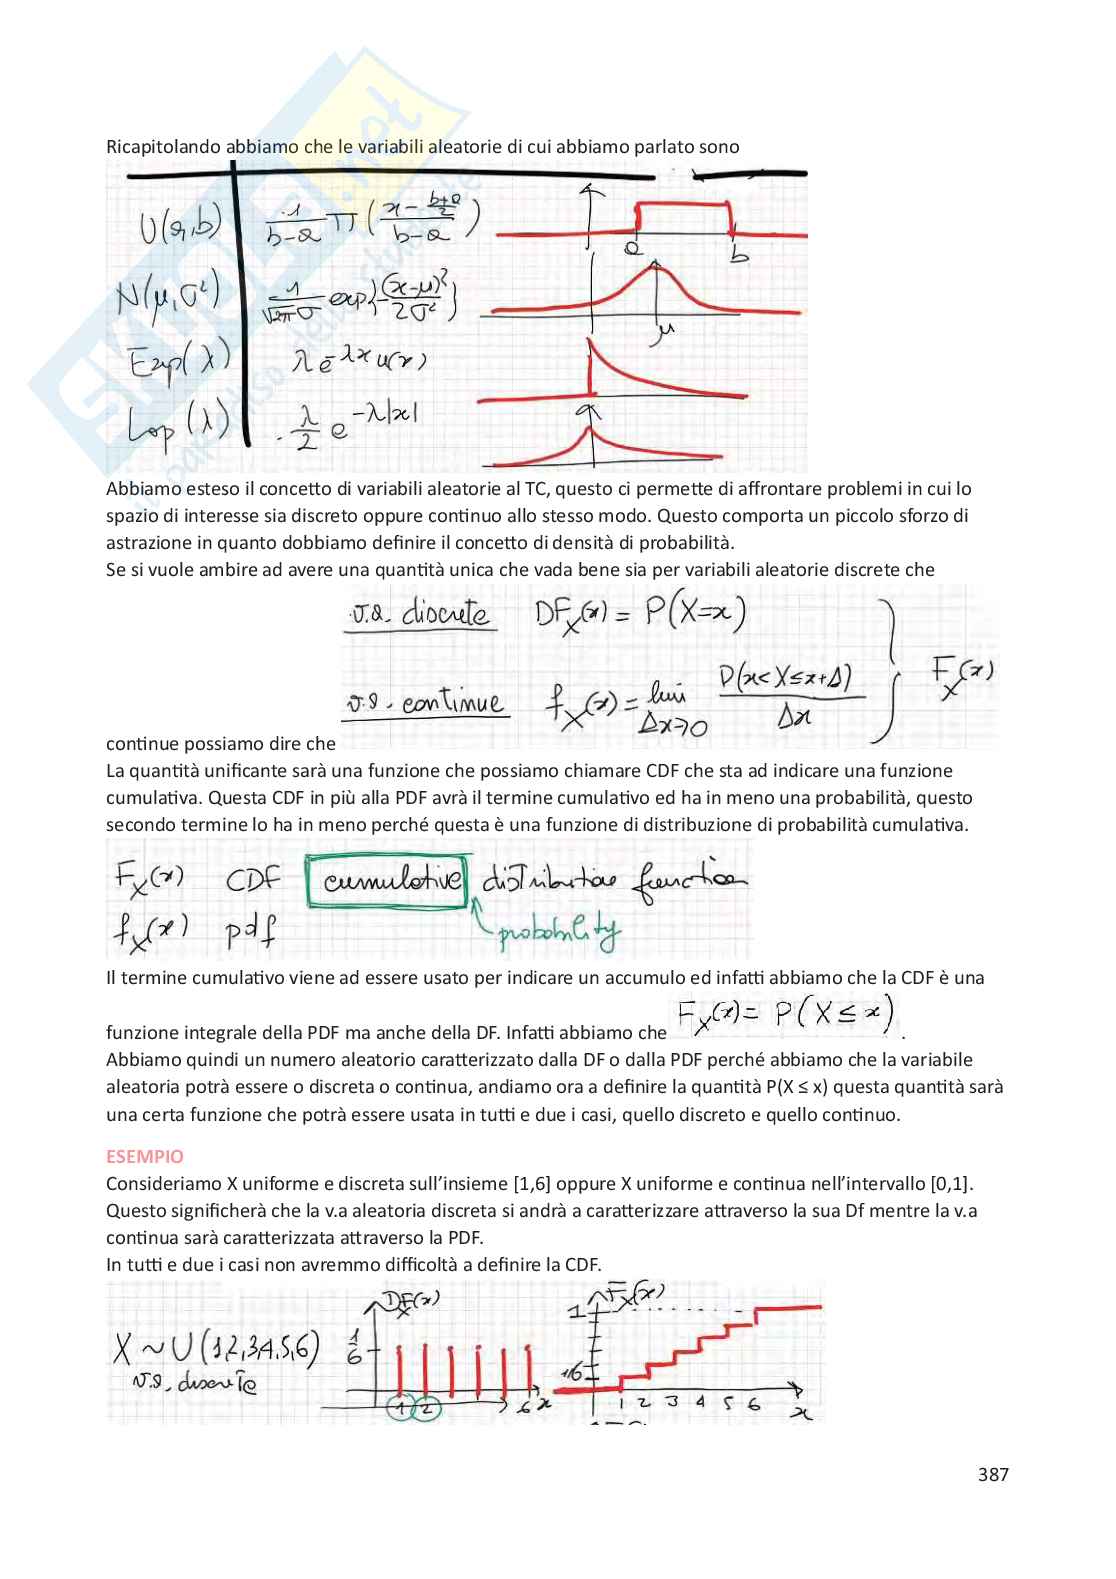 Ricapitolando abbiamo che le variabili aleatorie di cui abbiamo parlato sono
U(a,b) 1/(b-a) Π((x - (b+a)/2)/(b-a)) a b
N(μ,σ²) 1/(√2π σ) exp{-(x-μ)²/2σ²} μ
Exp(λ) λ e^-λx u(x)
Lap(λ) λ/2 e^-λ|x|
Abbiamo esteso il concetto di variabili aleatorie al TC, questo ci permette di affrontare problemi in cui lo
spazio di interesse sia discreto oppure continuo allo stesso modo. Questo comporta un piccolo sforzo di
astrazione in quanto dobbiamo definire il concetto di densità di probabilità.
Se si vuole ambire ad avere una quantità unica che vada bene sia per variabili aleatorie discrete che
v.a. discrete DF_X(x) = P(X=x)
v.a. continue f_X(x) = lim Δx→0 P(x<X≤x+Δ)/Δx } F_X(x)
continue possiamo dire che
La quantità unificante sarà una funzione che possiamo chiamare CDF che sta ad indicare una funzione
cumulativa. Questa CDF in più alla PDF avrà il termine cumulativo ed ha in meno una probabilità, questo
secondo termine lo ha in meno perché questa è una funzione di distribuzione di probabilità cumulativa.
F_X(x) CDF cumulative distribution function
f_X(x) pdf probability
Il termine cumulativo viene ad essere usato per indicare un accumulo ed infatti abbiamo che la CDF è una
funzione integrale della PDF ma anche della DF. Infatti abbiamo che F_X(x) = P(X ≤ x) .
Abbiamo quindi un numero aleatorio caratterizzato dalla DF o dalla PDF perché abbiamo che la variabile
aleatoria potrà essere o discreta o continua, andiamo ora a definire la quantità P(X ≤ x) questa quantità sarà
una certa funzione che potrà essere usata in tutti e due i casi, quello discreto e quello continuo.
ESEMPIO
Consideriamo X uniforme e discreta sull’insieme [1,6] oppure X uniforme e continua nell’intervallo [0,1].
Questo significherà che la v.a aleatoria discreta si andrà a caratterizzare attraverso la sua Df mentre la v.a
continua sarà caratterizzata attraverso la PDF.
In tutti e due i casi non avremmo difficoltà a definire la CDF.
DF_X(x) F_X(x)
1
X ~ U(1,2,3,4,5,6) 1/6 1/6
v.a. discrete
1 2 6 x 1 2 3 4 5 6 x
387